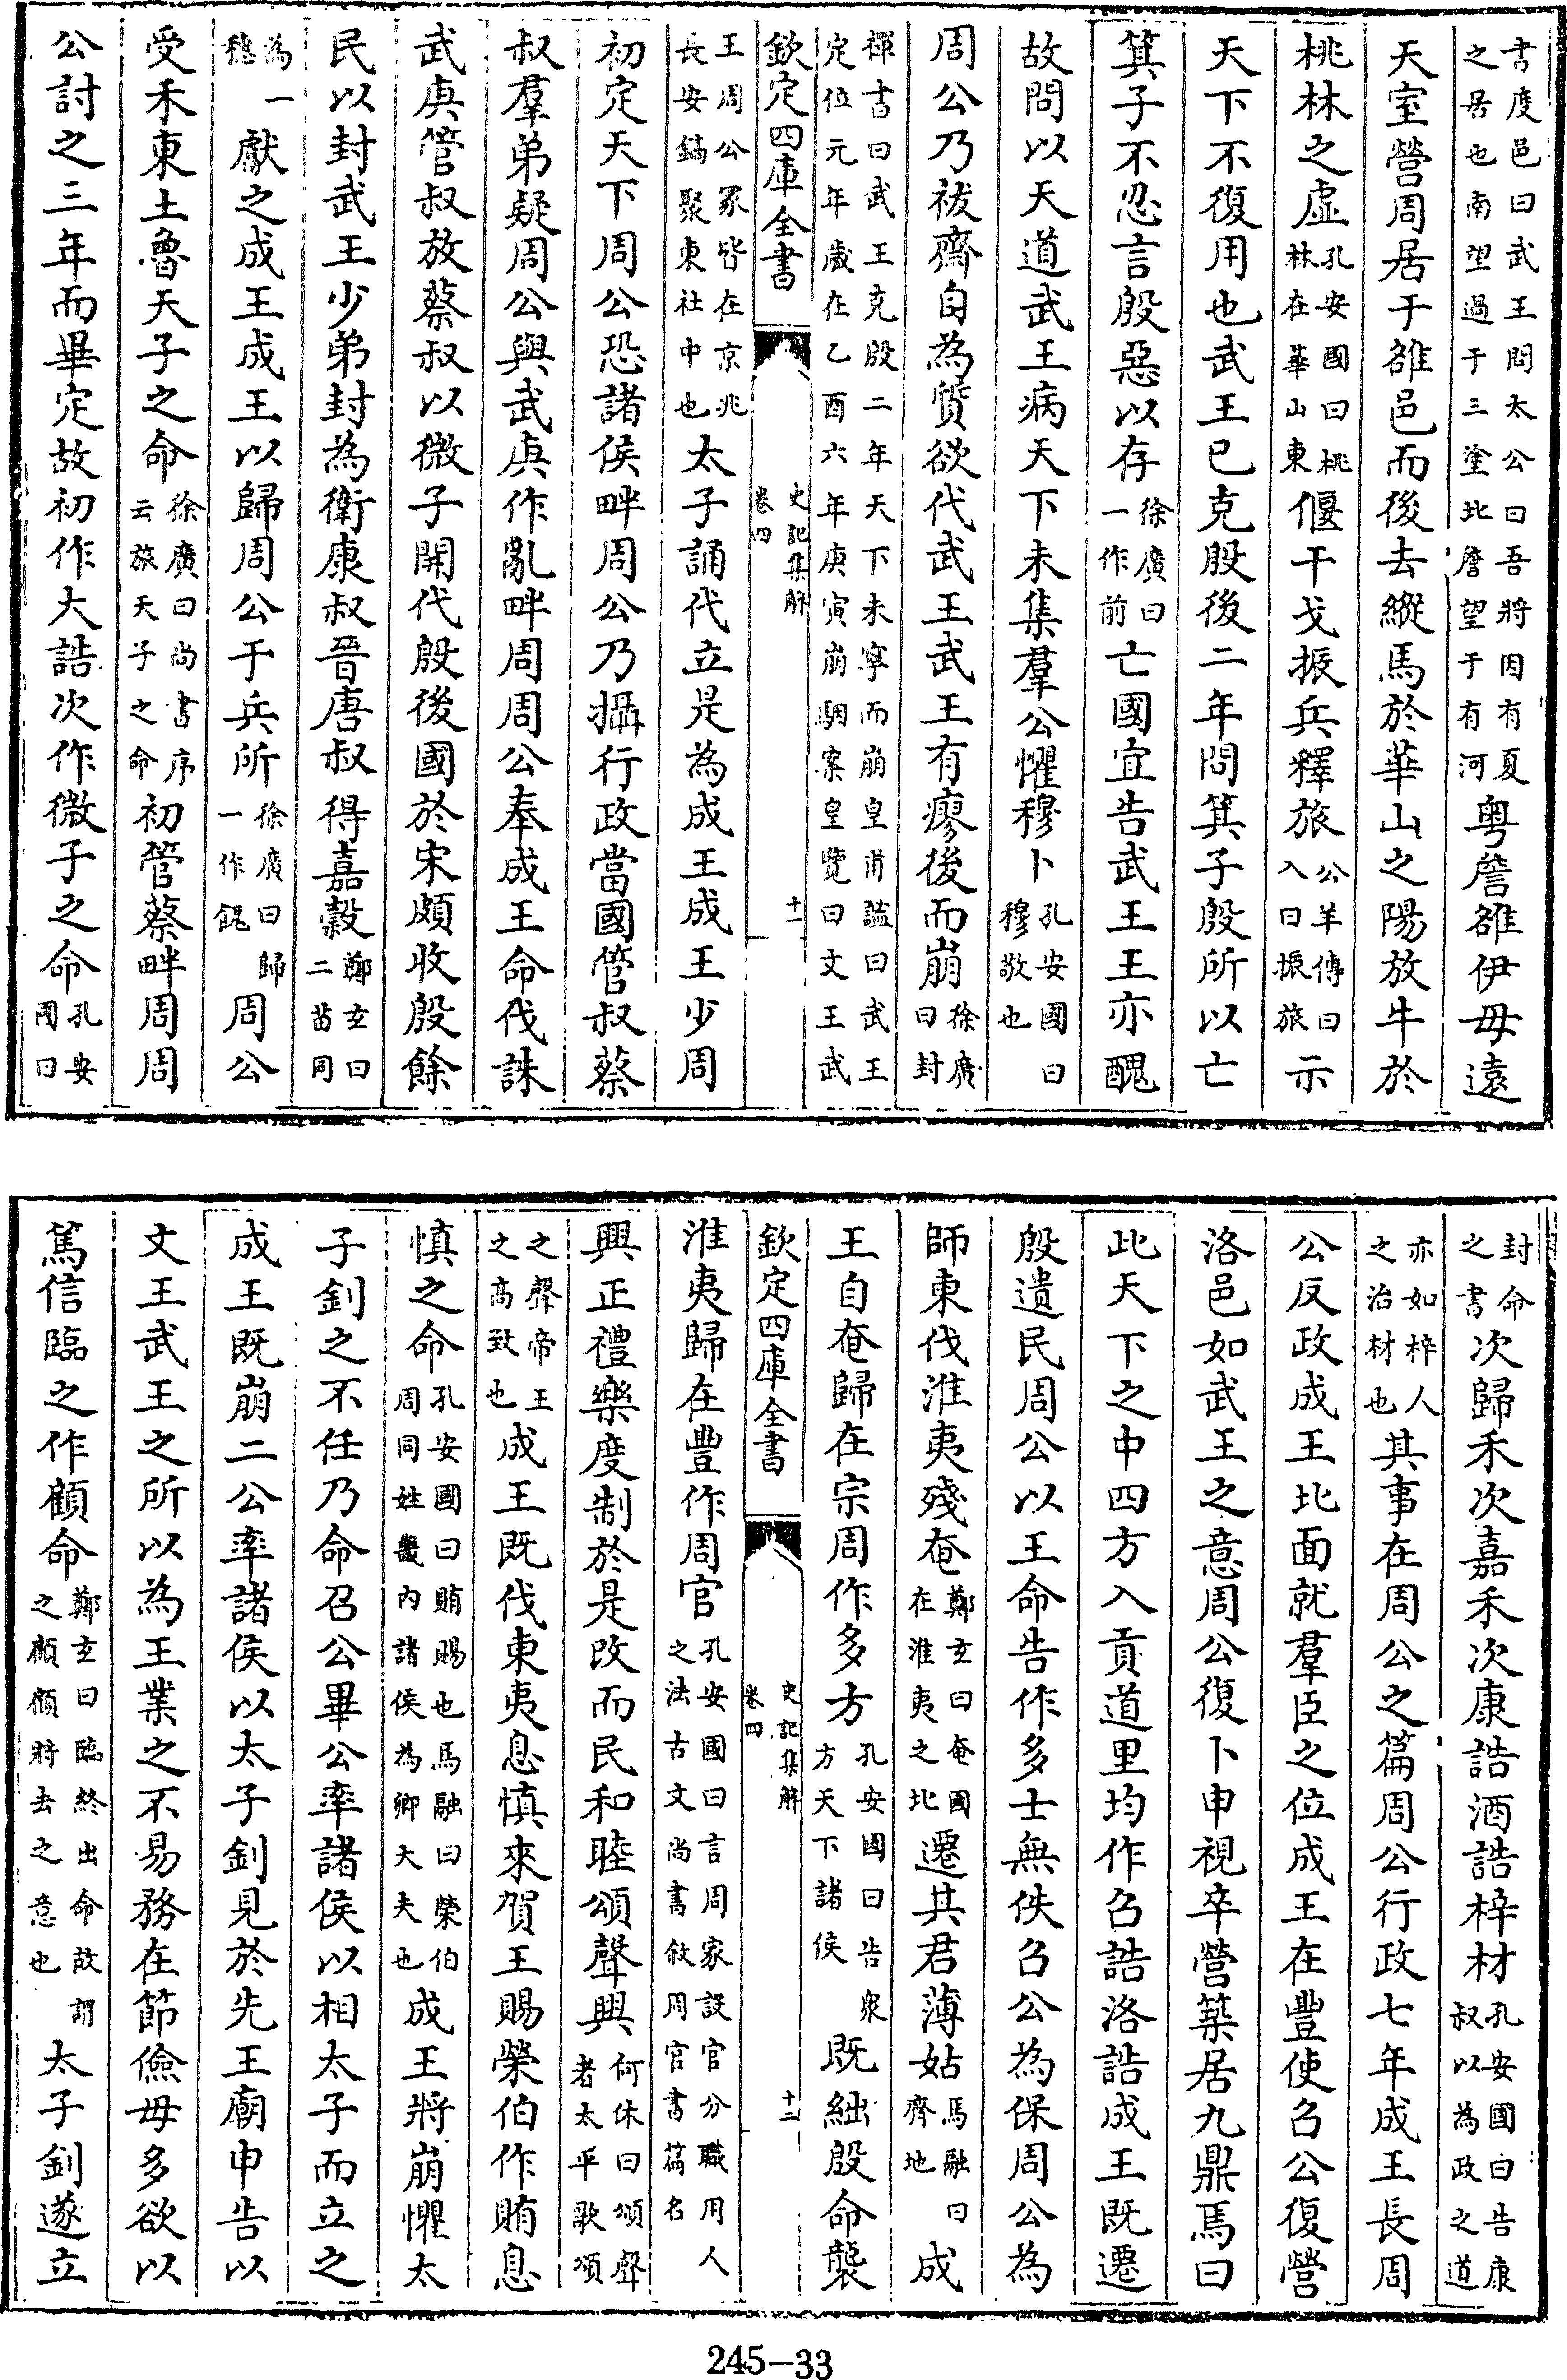 書度邑曰武王問太公曰吾將因有夏之居也南望過于三塗北詹望于有河粤詹雒伊毋遠
天室營周居于雒邑而後去縱馬於華山之陽放牛於
桃林之虛孔安國曰桃林在華山東偃干戈振兵釋旅公羊傳曰入曰振旅示
天下不復用也武王已克殷後二年問箕子殷所以亡
箕子不忍言殷惡以存徐廣曰一作前亡國宜告武王王亦醜
故問以天道武王病天下未集羣公懼穆卜孔安國曰穆敬也
周公乃祓齋自為質欲代武王武王有瘳後而崩徐廣曰封
禪書曰武王克殷二年天下未寧而崩皇甫謐曰武王定位元年歲在乙酉六年庚寅崩駰案皇覽曰文王武
欽定四庫全書 史記集解 卷四 十一
王周公冢皆在京兆長安鎬聚東社中也太子誦代立是為成王成王少周
初定天下周公恐諸侯畔周公乃攝行政當國管叔蔡
叔羣弟疑周公與武庚作亂畔周周公奉成王命伐誅
武庚管叔放蔡叔以微子開代殷後國於宋頗收殷餘
民以封武王少弟封為衛康叔晉唐叔得嘉穀鄭玄曰二苗同
為一穗獻之成王成王以歸周公于兵所徐廣曰歸一作餽周公
受禾東土魯天子之命徐廣曰尚書序云旅天子之命初管蔡畔周周
公討之三年而畢定故初作大誥次作微子之命孔安國曰
封命之書次歸禾次嘉禾次康誥酒誥梓材孔安國曰告康叔以為政之道
亦如梓人之治材也其事在周公之篇周公行政七年成王長周
公反政成王北面就羣臣之位成王在豐使召公復營
洛邑如武王之意周公復卜申視卒營築居九鼎焉曰
此天下之中四方入貢道里均作召誥洛誥成王既遷
殷遺民周公以王命告作多士無佚召公為保周公為
師東伐淮夷殘奄鄭玄曰奄國在淮夷之北遷其君薄姑馬融曰齊地成
王自奄歸在宗周作多方孔安國曰告衆方天下諸侯既絀殷命襲
欽定四庫全書 史記集解 卷四 十二
淮夷歸在豐作周官孔安國曰言周家設官分職用人之法古文尚書敘周官書篇名
興正禮樂度制於是改而民和睦頌聲興何休曰頌聲者太平歌頌
之聲帝王之高致也成王既伐東夷息慎來賀王賜榮伯作賄息
慎之命孔安國曰賄賜也馬融曰榮伯周同姓畿內諸侯為卿大夫也成王將崩懼太
子釗之不任乃命召公畢公率諸侯以相太子而立之
成王既崩二公率諸侯以太子釗見於先王廟申告以
文王武王之所以為王業之不易務在節儉毋多欲以
篤信臨之作顧命鄭玄曰臨終出命故謂之顧顧將去之意也太子釗遂立
245-33